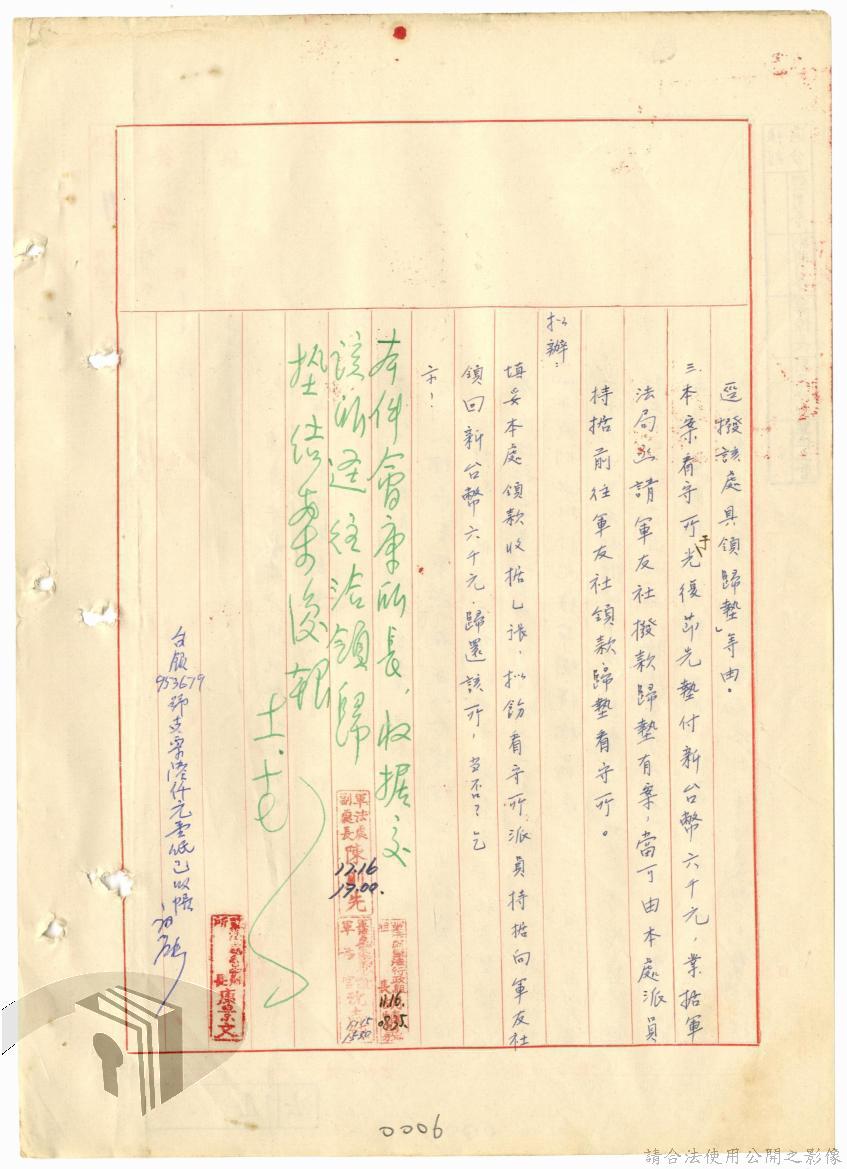 逕撥該處具領歸墊」等由。
三、本案看守所于光復節先墊付新台幣六千元,業据軍
法局函請軍友社撥款歸墊有案,當可由本處派員
持据前往軍友社領款歸墊看守所。
拟辦:
填妥本處領款收据乙張,拟飭看守所派員持据向軍友社
領回新台幣六千元,歸還該所,當否?乞
示!
本件會康所長,收据交
該所逕往洽領歸
墊結案後報
軍法處
副處長
陳
先
12.16
17.00.
行政
長
11.16.
08.35
所長康景文
台領
953679
號支票陸仟元壹紙已收悟
0006
請合法使用公開之影像